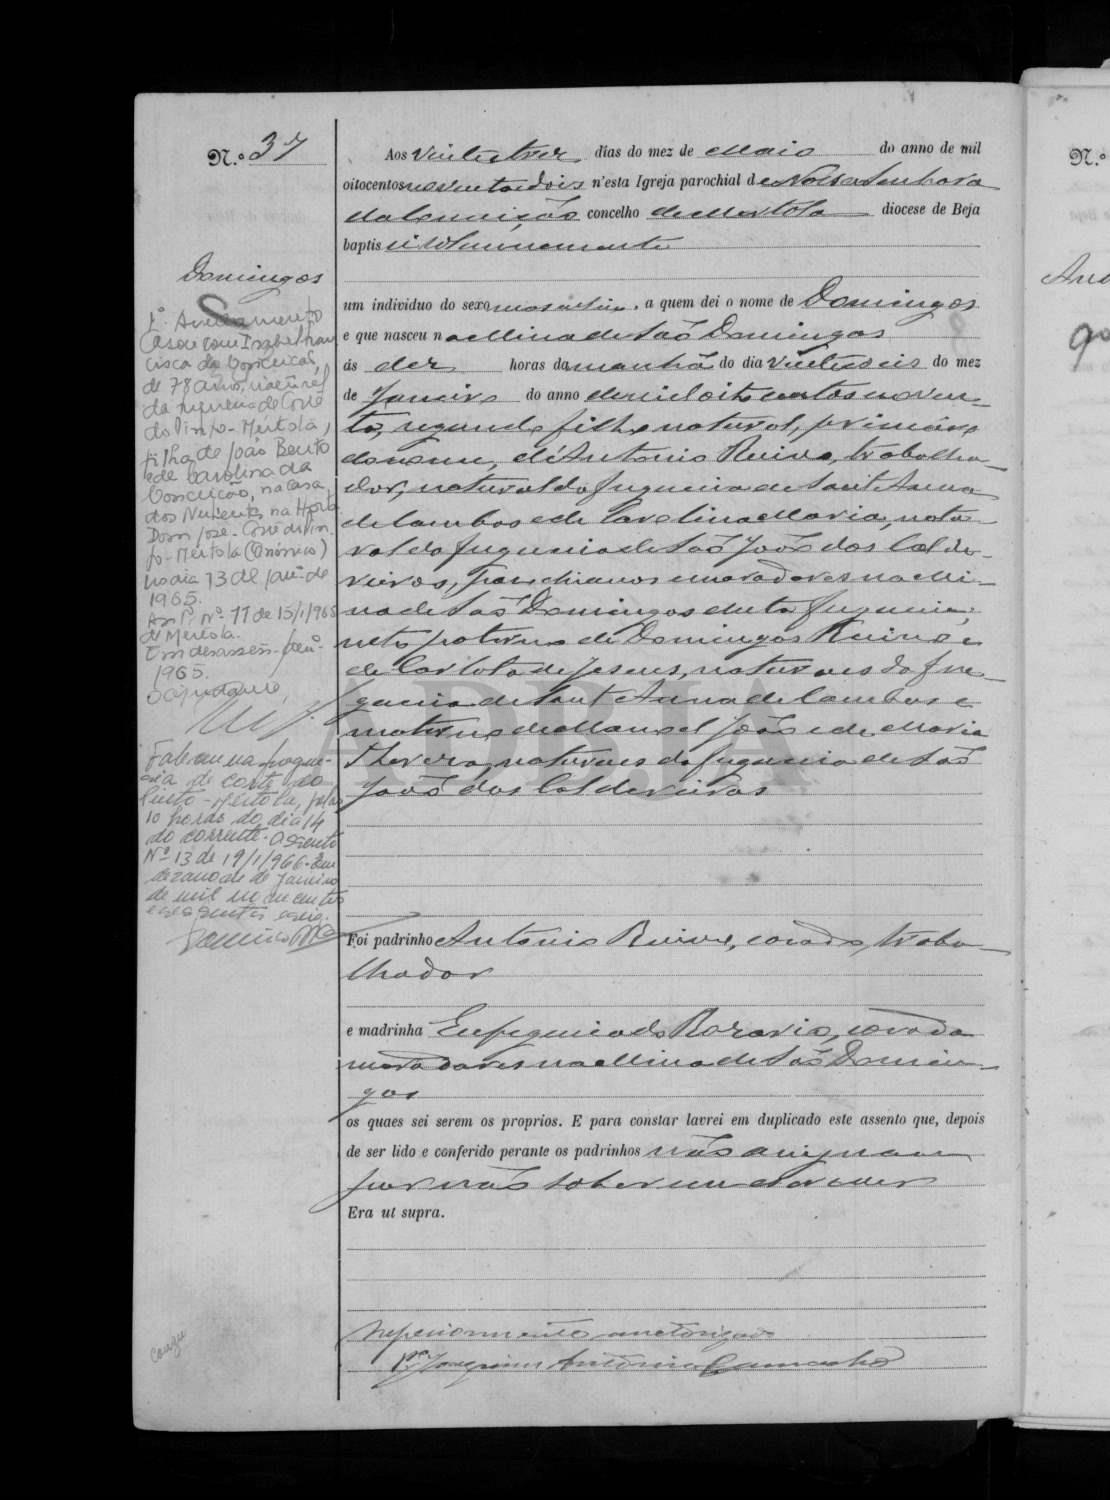 N.º 37
Domingos
1.º Averbamento
Casou com Isabel Fran
cisca da Conceição,
de 78 anos, natural
da freguesia de Corte
do Pinto - Mértola,
filha de João Bento
e de Carolina da
Conceição, na casa
dos Nubentes, na Horta
Dom José - Corte do Pin-
to - Mértola (Canónico)
no dia 13 de Jan.º de
1965.
Ass.º N.º 11 de 15/1/965
de Mértola.
Em dezasseis - Jan.º -
1965.
O Ajudante,
Faleceu na fregue-
sia de Corte do
Pinto - Mértola, pelas
10 horas do dia 14
do corrente. Assento
Nº 13 de 19/1/966. Em
dezanove de Janeiro
de mil novecentos
e sessenta e seis.
Aos vinte e tres dias do mez de Maio do anno de mil
oitocentos noventa e dois n'esta Igreja parochial de Nossa Senhora
da Conceição concelho de Mertola diocese de Beja
baptisei solemnemente
um individuo do sexo masculino, a quem dei o nome de Domingos
e que nasceu na Mina de São Domingos
ás dez horas da manhã do dia vinte e seis do mez
de Janeiro do anno de mil oito centos noven-
ta, segundo filho natural, primeiro
do nome, de Antonio Ruivo, trabalha-
dor, natural da freguezia de Sant'Anna
de Cambas e de Carolina Maria, natu-
ral da freguezia de São João dos Caldei-
reiros, parochianos e moradores na Mi-
na de São Domingos desta freguezia;
neto paterno de Domingos Ruivo e
de Carlota de Jesus, naturaes da fre-
guezia de Sant'Anna de Cambas e
materno de Manoel João e de Maria
Thereza, naturaes da freguezia de São
João dos Caldeireiros
Foi padrinho Antonio Ruivo, casado, traba-
lhador
e madrinha Eufigenia do Rozario, casada
moradores na Mina de São Domin-
gos
os quaes sei serem os proprios. E para constar lavrei em duplicado este assento que, depois
de ser lido e conferido perante os padrinhos não assignam
por não saberem escrever
Era ut supra.
Superiormente auctorizado
P.e Joaquim Antonio Camacho
ADBJA
N.º